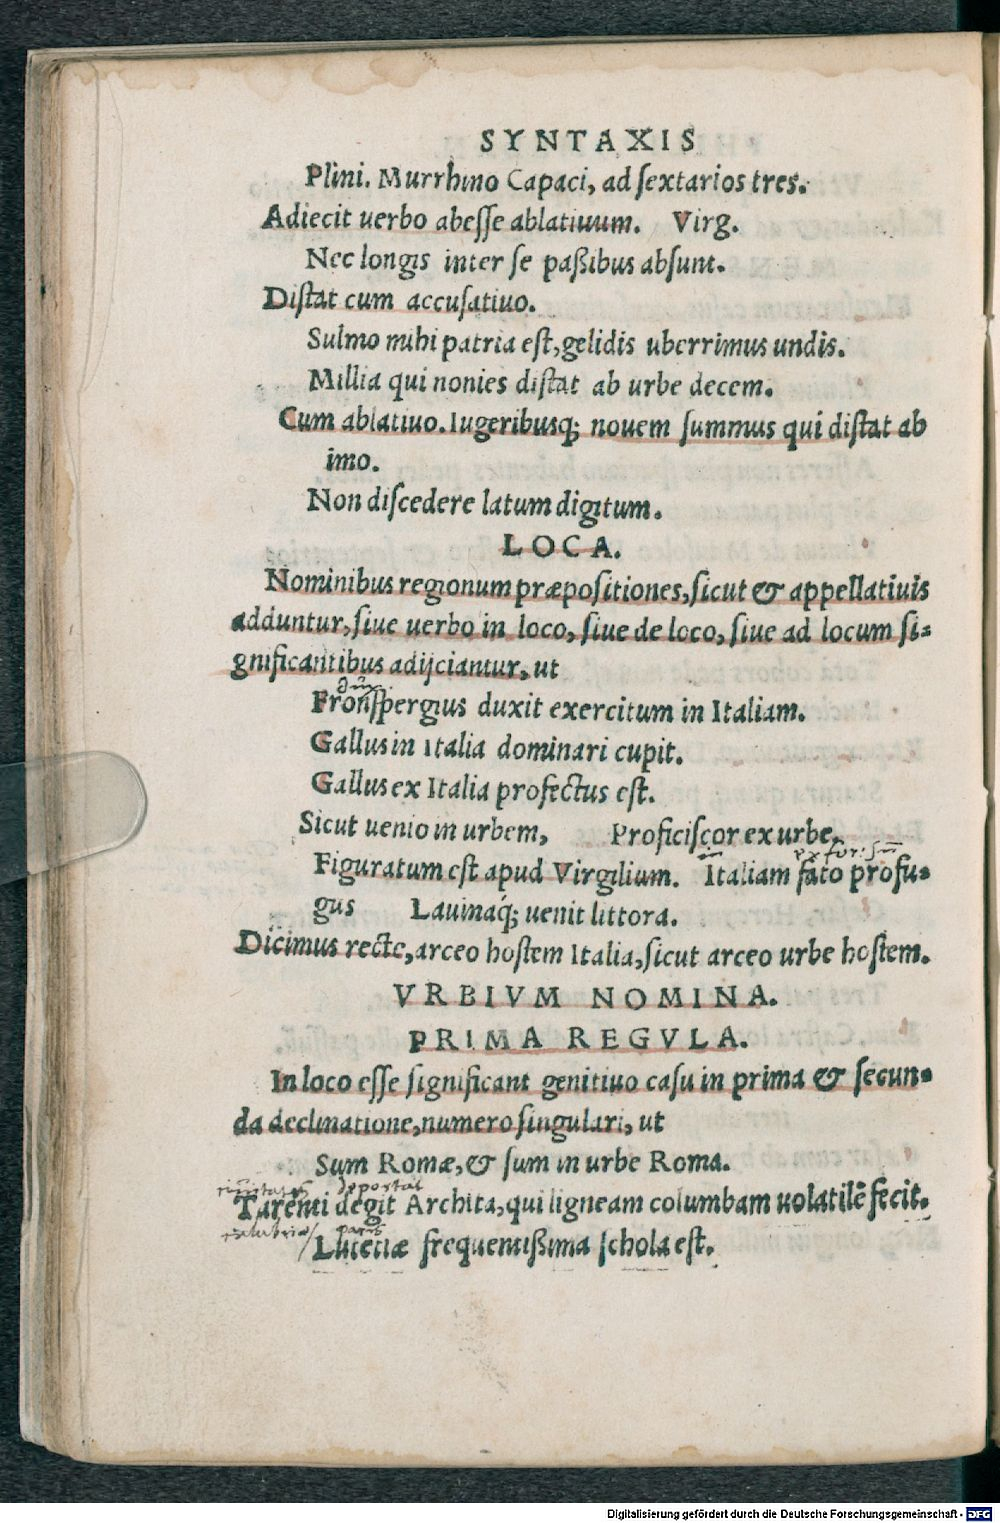 SYNTAXIS
Plini. Murrhino Capaci, ad ſextarios tres.
Adiecit uerbo abeſſe ablatiuum. Virg.
Nec longis inter ſe paßibus abſunt.
Diſtat cum accuſatiuo.
Sulmo mihi patria eſt, gelidis uberrimus undis.
Millia qui nonies diſtat ab urbe decem.
Cum ablatiuo. Iugeribusq; nouem ſummus qui diſtat ab
imo.
Non diſcedere latum digitum.
LOCA.
Nominibus regionum præpoſitiones, ſicut & appellatiuis
adduntur, ſiue uerbo in loco, ſiue de loco, ſiue ad locum ſi-
gnificantibus adijciantur, ut
Fronſpergius duxit exercitum in Italiam.
Gallus in Italia dominari cupit.
Gallus ex Italia profectus eſt.
Sicut uenio in urbem, Proficiſcor ex urbe.
Figuratum eſt apud Virgilium. Italiam fato profu-
gus Lauinaq́; uenit littora.
Dicimus recte, arceo hoſtem Italia, ſicut arceo urbe hoſtem.
VRBIVM NOMINA.
PRIMA REGVLA.
In loco eſſe ſignificant genitiuo caſu in prima & ſecun-
da declinatione, numero ſingulari, ut
Sum Romæ, & ſum in urbe Roma.
Tarenti degit Archita, qui ligneam columbam uolatilē fecit.
Lutetiæ frequentißima ſchola eſt.
Digitalisierung gefördert durch die Deutsche Forschungsgemeinschaft - DFG